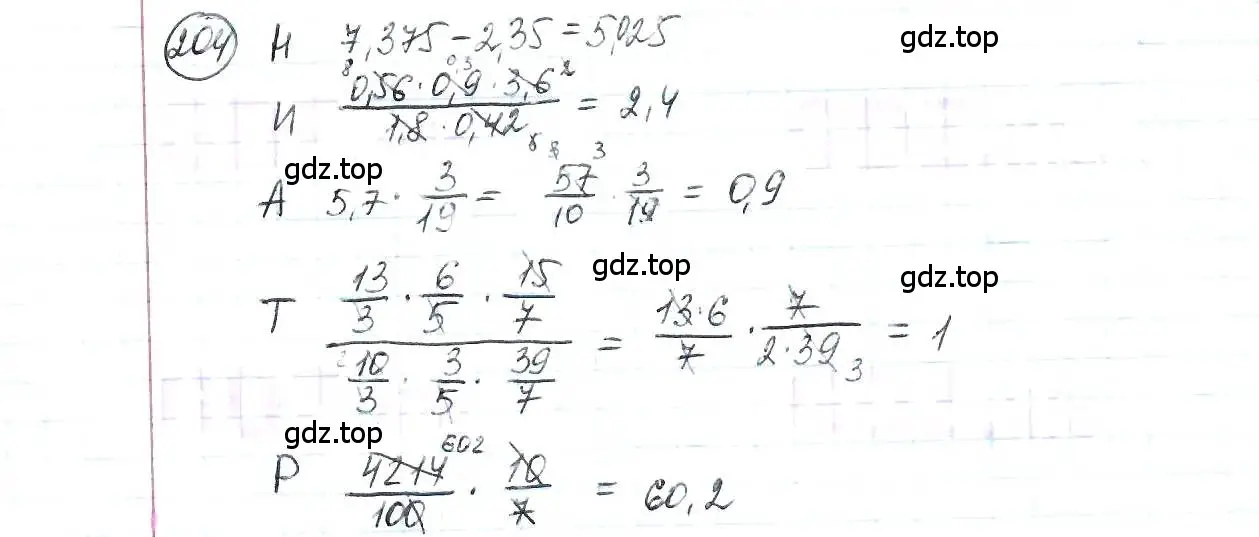 204 Н 7,375 - 2,35 = 5,025 gdz.top
И (0,56 · 0,9 · 3,6) / (1,8 · 0,42) = 2,4
gdz.top
А 5,7 · 3/19 = 57/10 · 3/19 = 0,9
gdz.top gdz.top
Т (13/3 · 6/5 · 15/7) / (10/3 · 3/5 · 39/7) = (13·6)/7 · 7/(2·39) = 1
gdz.top
Р 4214/100 · 10/7 = 60,2